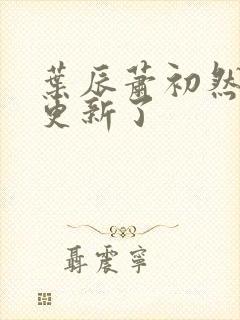 葉辰蕭初然
更新了
聶震寧